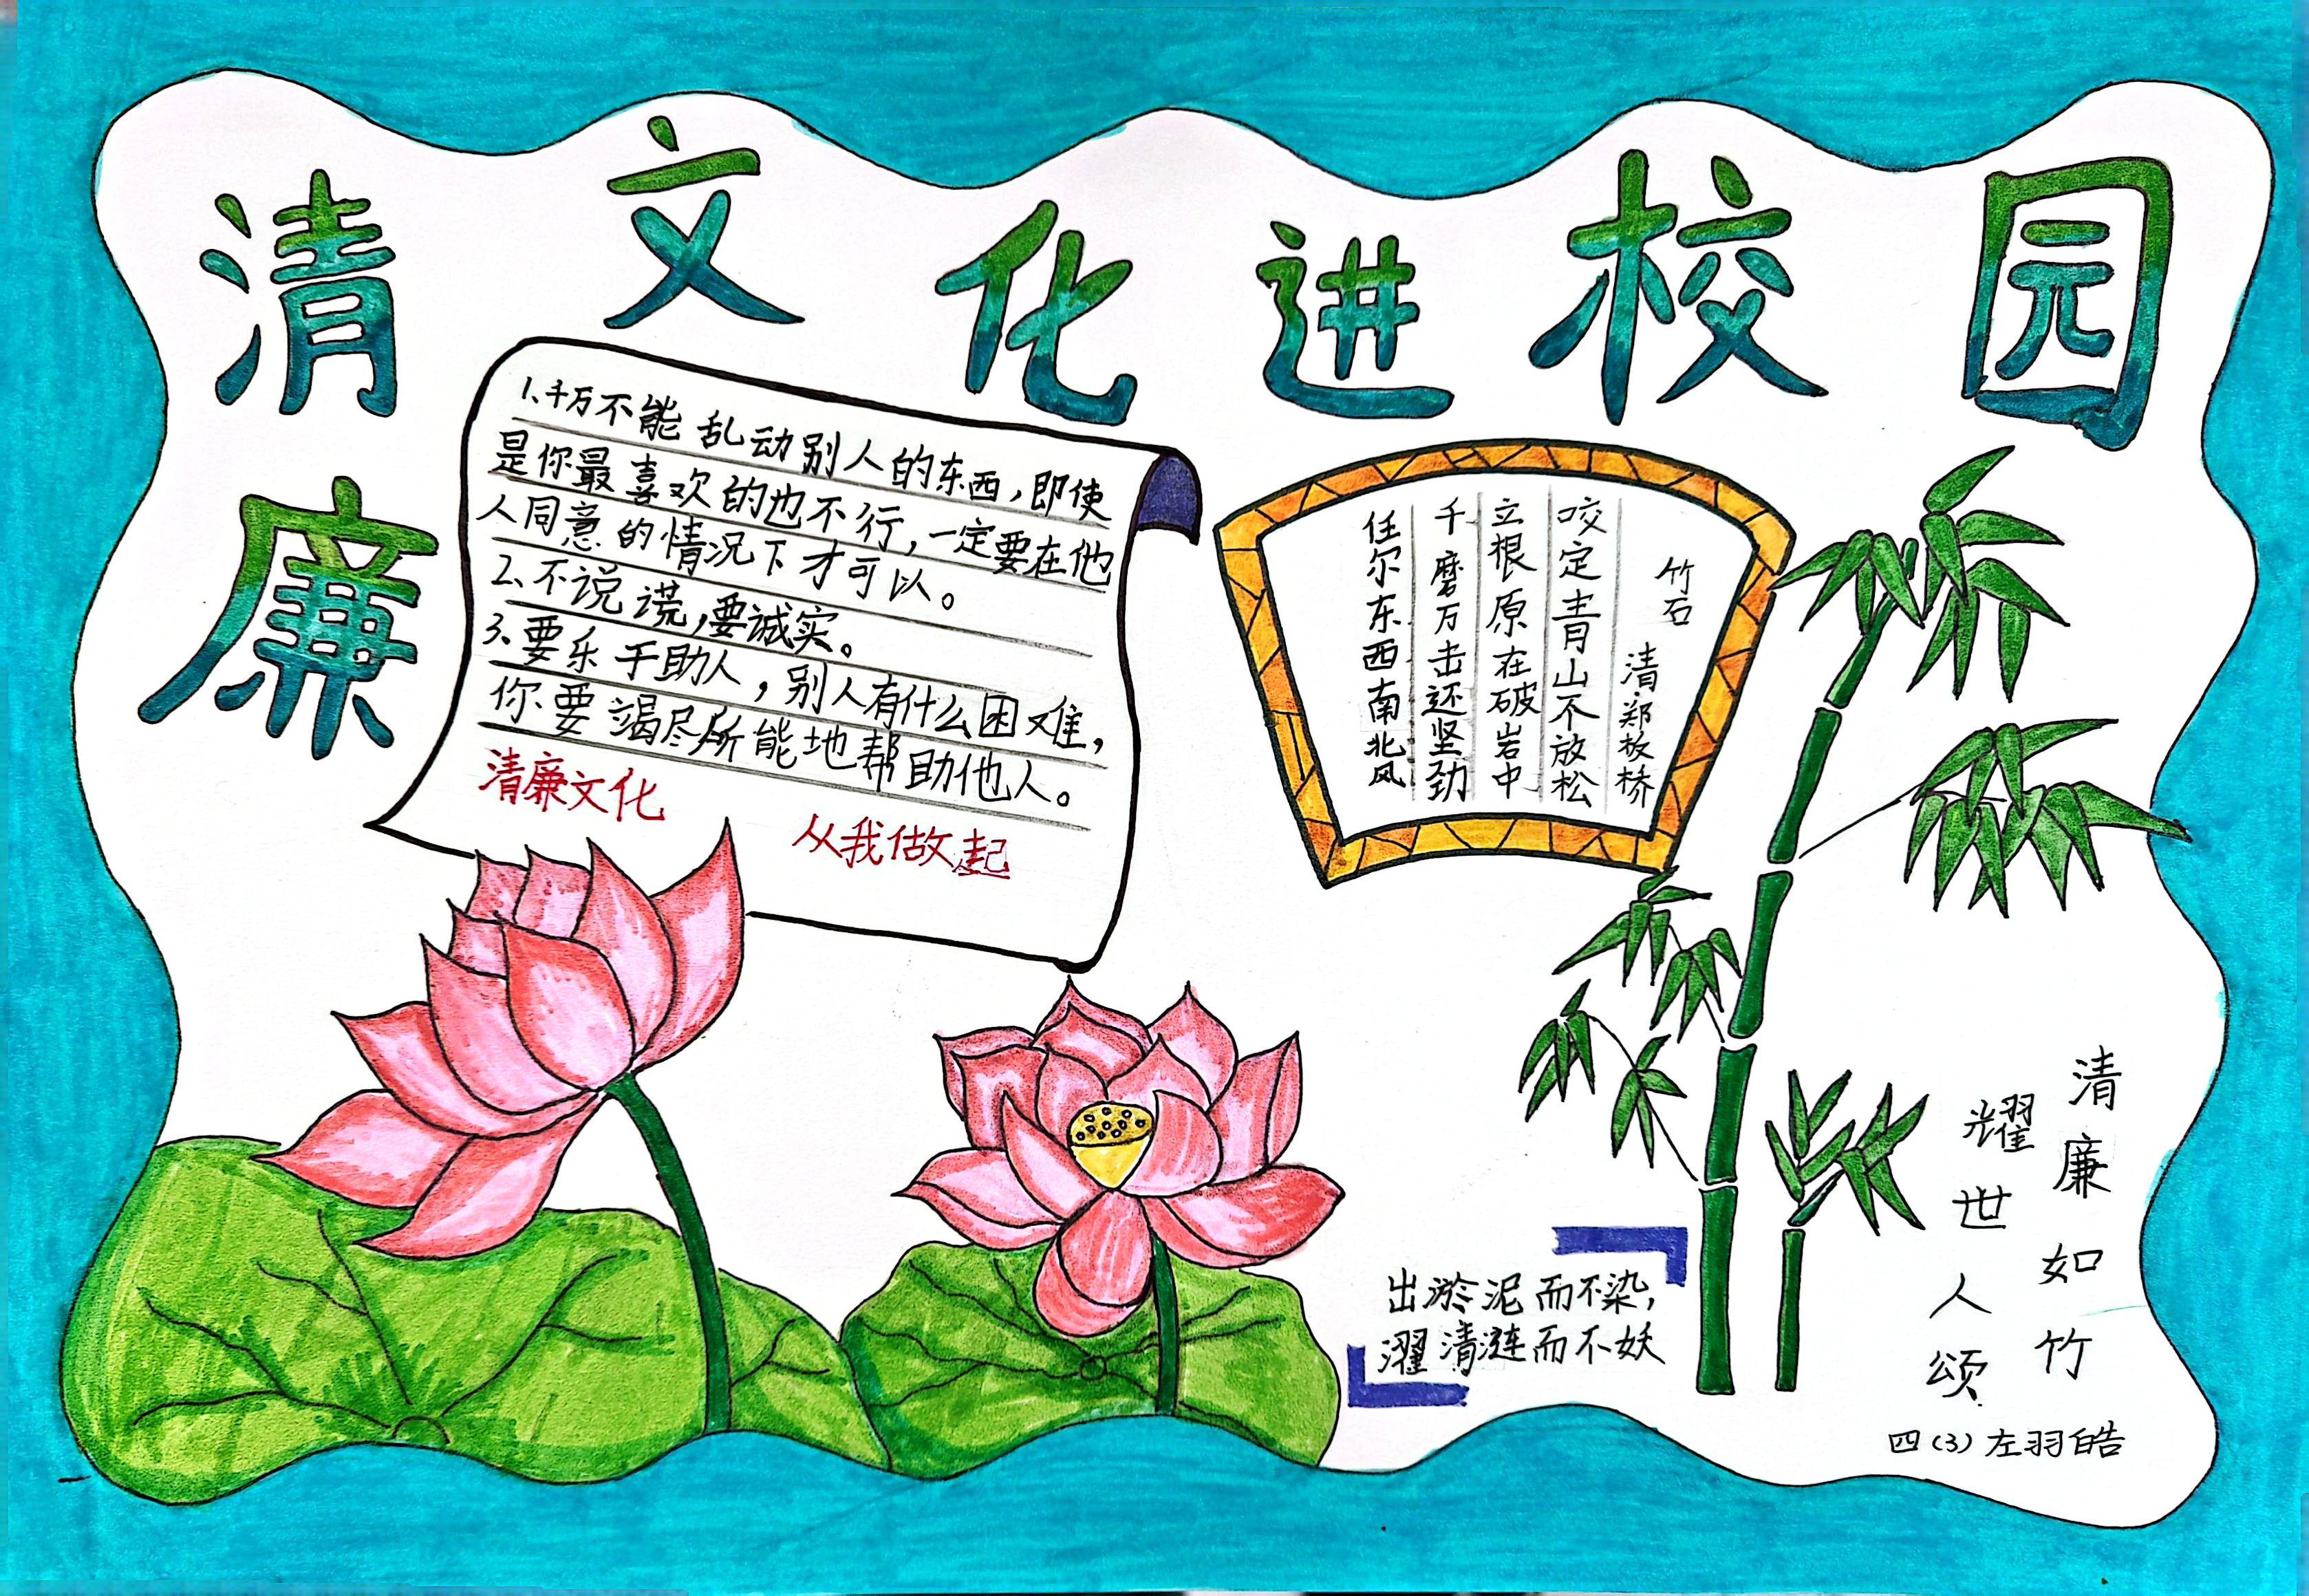 清廉文化进校园
1、千万不能乱动别人的东西,即使
是你最喜欢的也不行,一定要在他
人同意的情况下才可以。
2、不说谎,要诚实。
3、要乐于助人,别人有什么困难,
你要竭尽所能地帮助他人。
清廉文化
从我做起
竹石
清·郑板桥
咬定青山不放松
立根原在破岩中
千磨万击还坚劲
任尔东西南北风
出淤泥而不染,
濯清涟而不妖
清廉如竹
耀世人颂
四(3)左羽皓